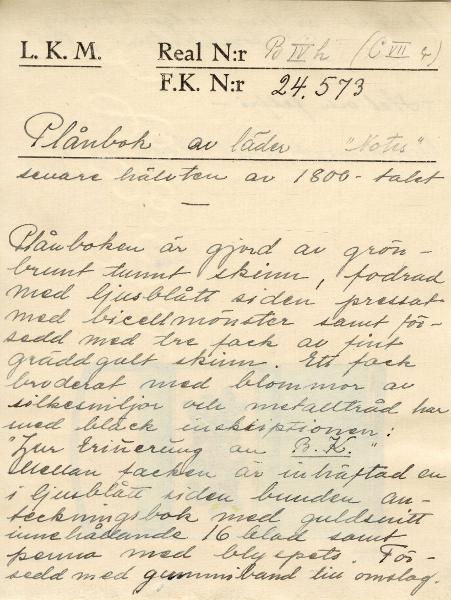 L. K. M. Real N:r Po IV h (C VII r)
F.K. N:r 24.573
Plånbok av läder "Notes"
senare hälvten av 1800-talet
—
Plånboken är gjord av grön-
brunt tunnt skinn, fodrad
med ljusblått siden pressat
med bicellmönster samt för-
sedd med tre fack av fint
gräddgult skinn. Ett fack
broderat med blommor av
silkesniljor och metalltråd har
med bläck inskriptionen:
"Zur Erinerung an B. K."
Mellan facken är inhäftad en
i ljusblått siden bunden an-
teckningsbok med guldsnitt
innehållande 16 blad samt
penna med blyspets. För-
sedd med gummiband till omslag.